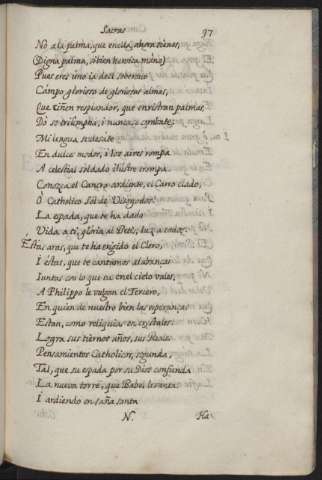 Sacras 97
No a la palma, que en esta ahora tienes,
(Digna palma, si bien heroica mano)
Pues eres uno ia del soberano
Campo glorioso de gloriosas almas,
Que ciñen resplandor, que enristran palmas
Do se triumpha, i nunca se combate:
Mi lengua se desate
En dulces modos, i los aires rompa
A celestial soldado ilustre trompa.
Conozca el Cancro ardiente, el Carro elado,
O Catholico Sol de Vicegodos:
La espada, que te ha dado
Vida a ti, gloria al Betis, luz a todos.
Estas aras, que te ha erigido el Clero,
I estas, que te cantamos alabanças
Juntas con lo que tu en el cielo vales,
A Philippo le valgan el Tercero,
En quien de nuestro bien las esperanças
Estan, como reliquias en crystales:
Logra sus tiernos años, sus Reales
Pensamientos Catholicos, segunda,
Tal, que su espada por su Dios confunda
La nueva torre, que Babel levanta
I ardiendo en saña santa
N. Ha